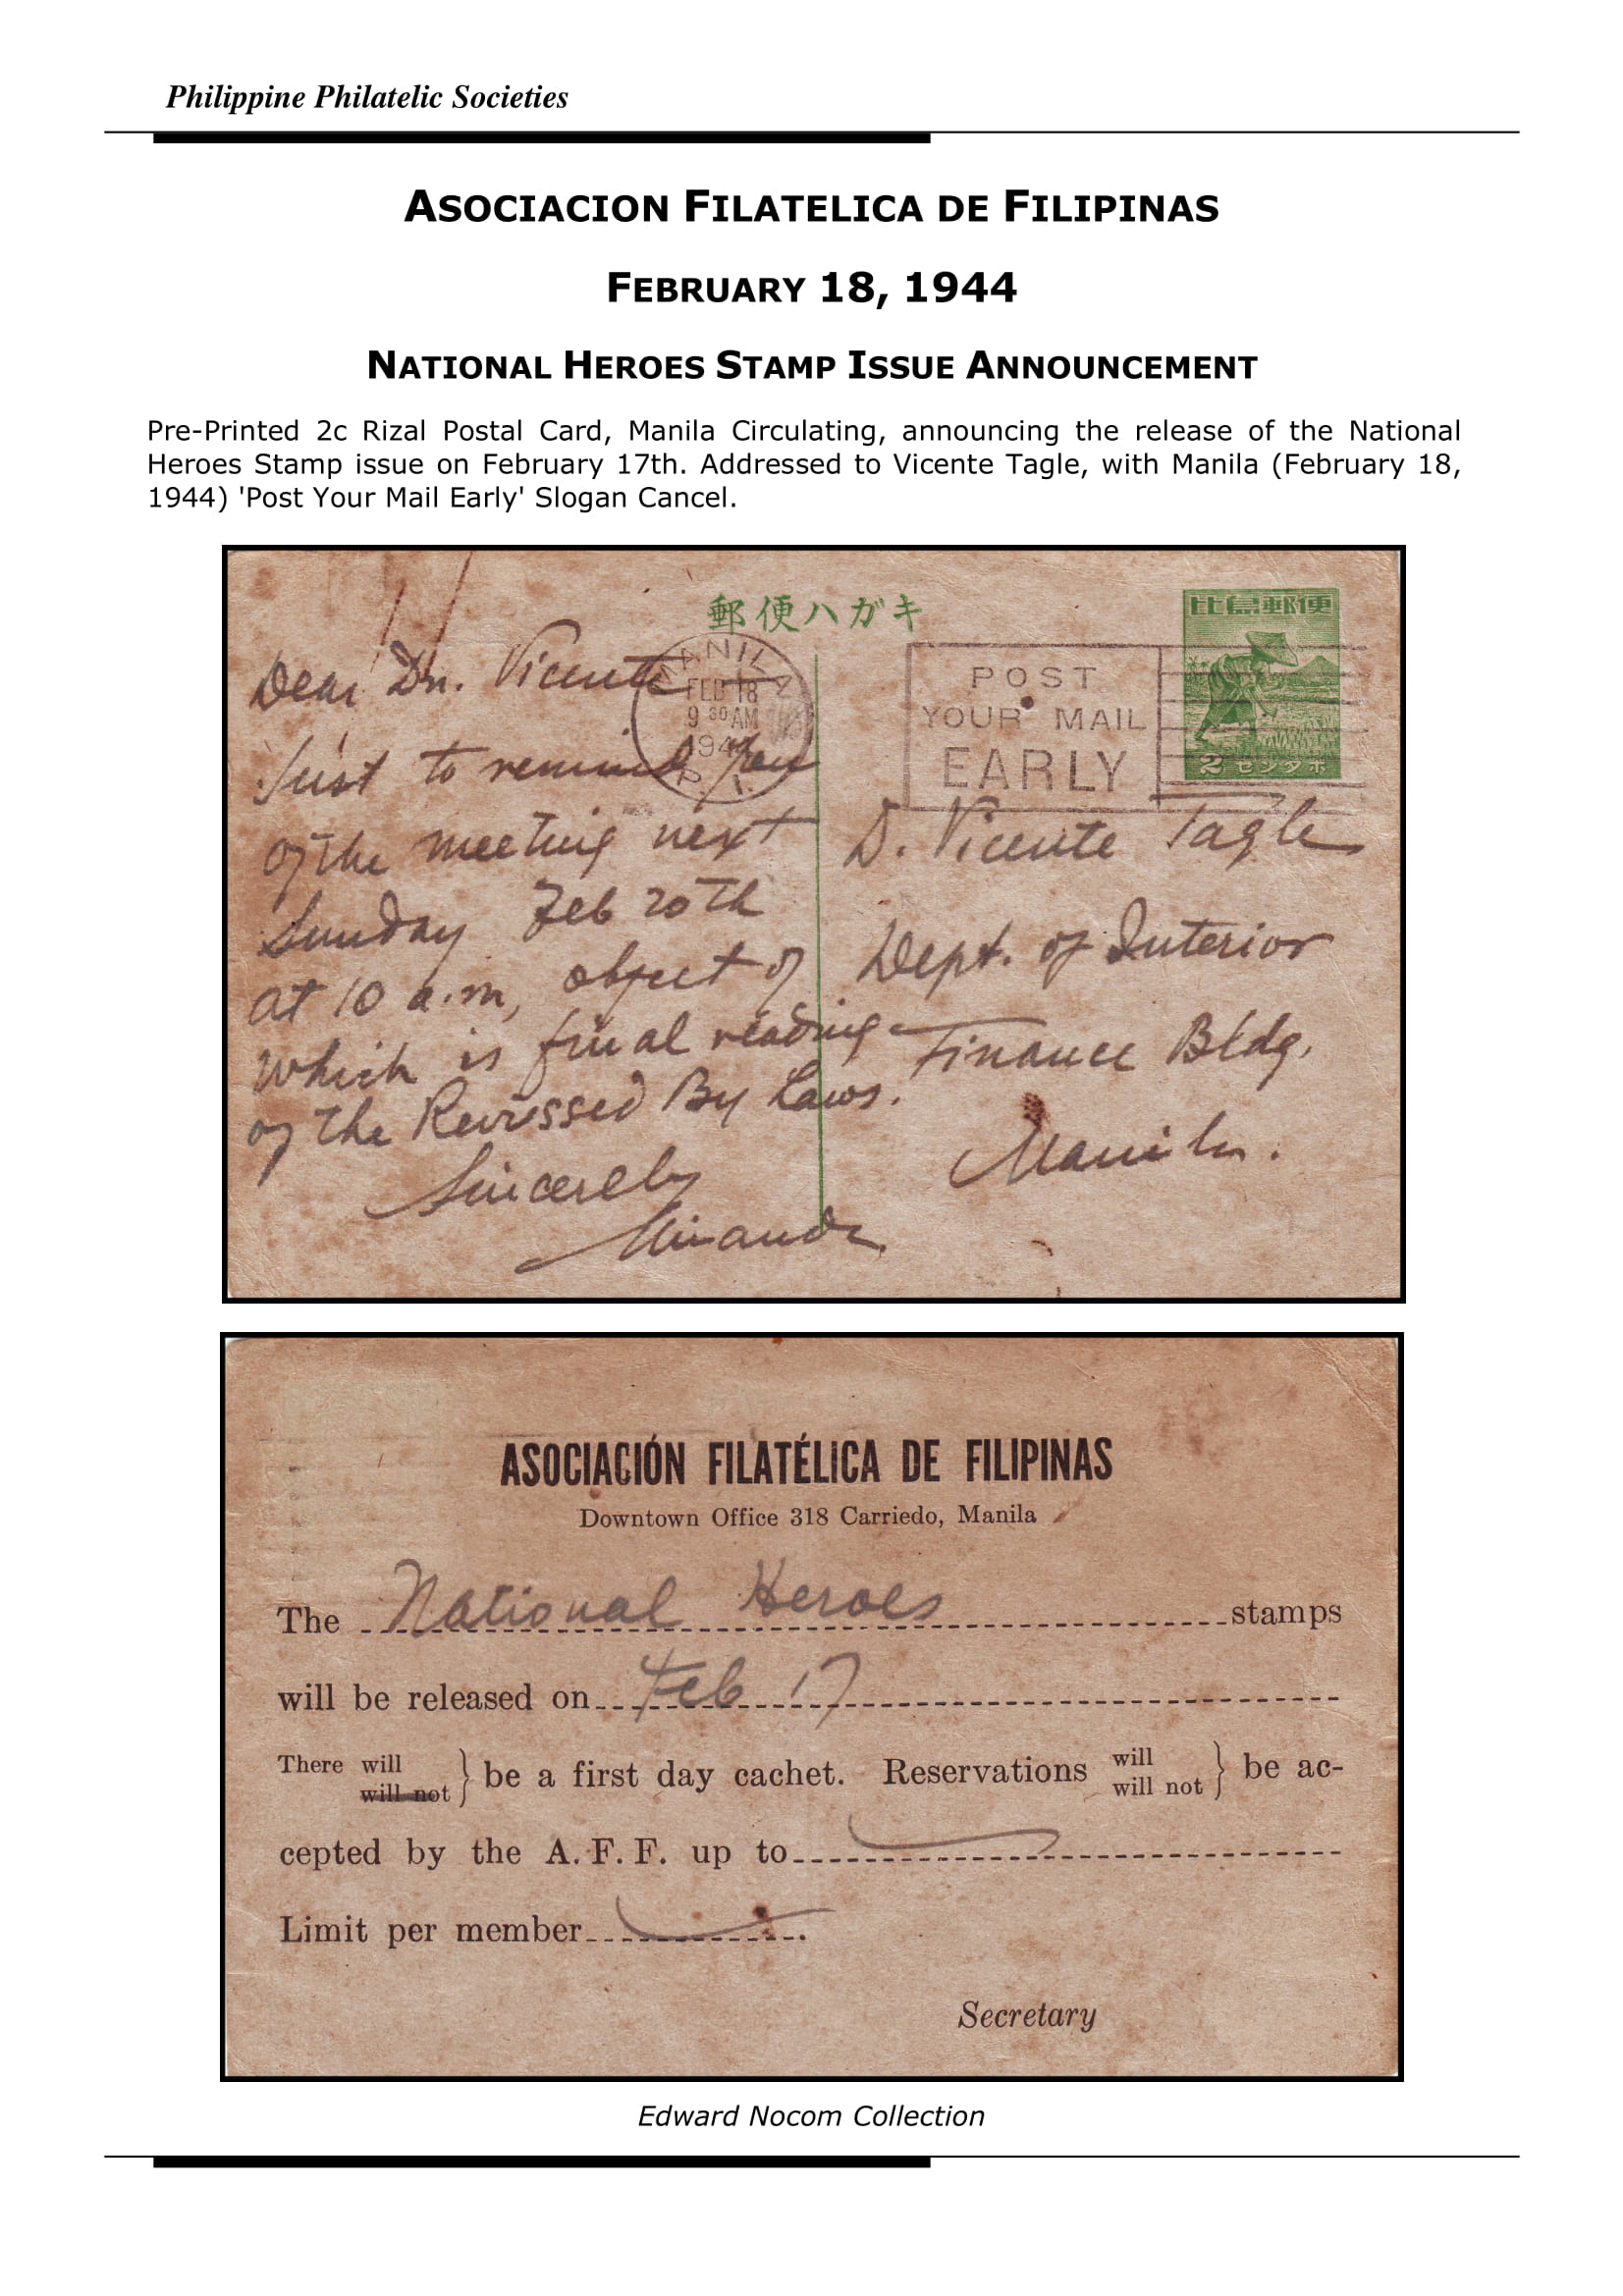 Philippine Philatelic Societies
ASOCIACION FILATELICA DE FILIPINAS
FEBRUARY 18, 1944
NATIONAL HEROES STAMP ISSUE ANNOUNCEMENT
Pre-Printed 2c Rizal Postal Card, Manila Circulating, announcing the release of the National
Heroes Stamp issue on February 17th. Addressed to Vicente Tagle, with Manila (February 18,
1944) 'Post Your Mail Early' Slogan Cancel.
郵便ハガキ
比島郵便
2 センタボ
MANILA
FEB 18
9 30 AM
1944
P. I.
POST
YOUR MAIL
EARLY
Dear Dn. Vicente
Just to remind you
of the meeting next
Sunday Feb 20th
at 10 a.m, object of
which is final reading
of the Revissed By Laws.
Sincerely
Miranda
D. Vicente Tagle
Dept. of Interior
Finance Bldg,
Manila.
ASOCIACIÓN FILATÉLICA DE FILIPINAS
Downtown Office 318 Carriedo, Manila
The National Heroes stamps
will be released on Feb 17
There will / will not } be a first day cachet. Reservations will / will not } be ac-
cepted by the A. F. F. up to
Limit per member
Secretary
Edward Nocom Collection